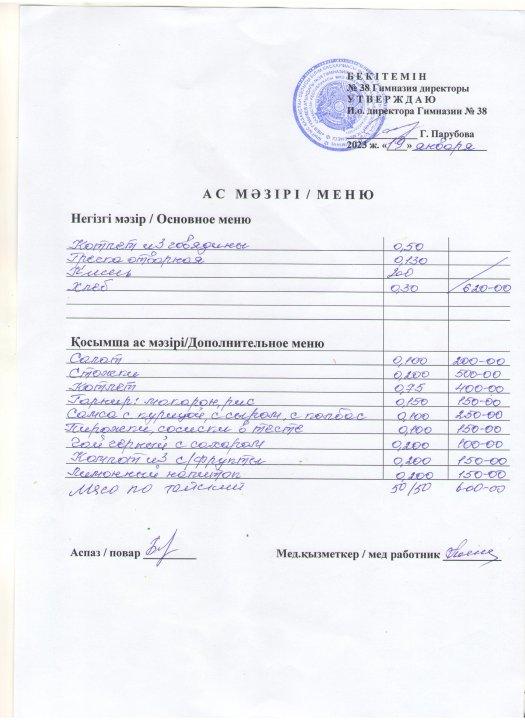 БЕКІТЕМІН
№ 38 Гимназия директоры
УТВЕРЖДАЮ
И.о. директора Гимназии № 38
Г. Парубова
2023 ж. «19» января
АС МӘЗІРІ / МЕНЮ
Негізгі мәзір / Основное меню
Котлет из говядины 0,50
Греча отварная 0,130
Кисель 200
Хлеб 0,30 620-00
Қосымша ас мәзірі/Дополнительное меню
Салат 0,100 200-00
0,200 500-00
Котлет 0,75 400-00
Гарнир: макарон, рис 0,150 150-00
Самса с курицей, с сыром, с колбас 0,100 250-00
Пирожки, сосиски в тесте 0,100 150-00
Чай черный с сахаром 0,200 100-00
Компот из с/фруктов 0,200 150-00
Лимонный напиток 0,200 150-00
Мясо по тайский 50/50 600-00
Аспаз / повар
Мед.қызметкер / мед работник